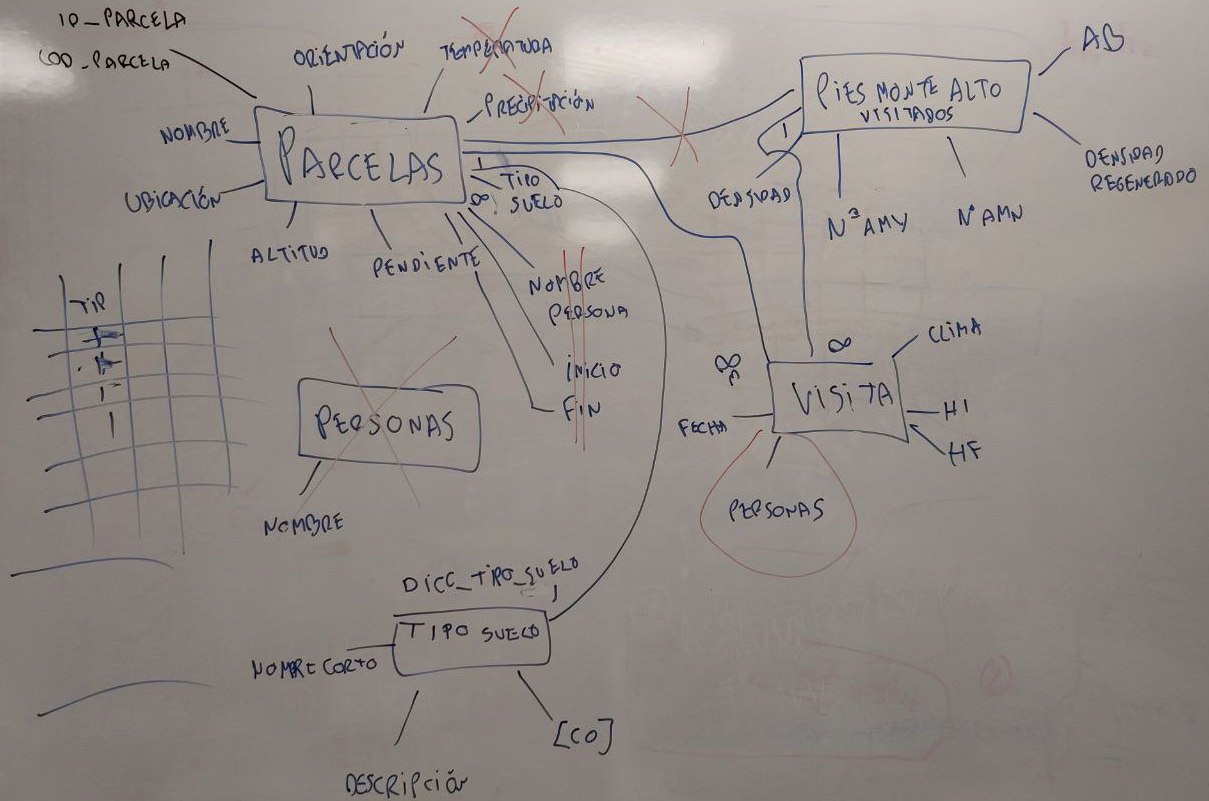 ID_PARCELA
COD_PARCELA
ORIENTACIÓN
TEMPERATURA
PRECIPITACIÓN
NOMBRE
PARCELAS
UBICACIÓN
ALTITUD
PENDIENTE
1
TIPO
SUELO
∞
NOMBRE
PERSONA
INICIO
FIN
PIES MONTE ALTO
VISITADOS
AB
1
DENSIDAD
DENSIDAD
REGENERADO
Nº AMY
Nº AMN
TIP
1
1
1
1
PERSONAS
NOMBRE
∞
∞
CLIMA
VISITA
FECHA
HI
HF
PERSONAS
DICC_TIPO_SUELO
1
TIPO SUELO
NOMBRE CORTO
[CO]
DESCRIPCIÓN
2